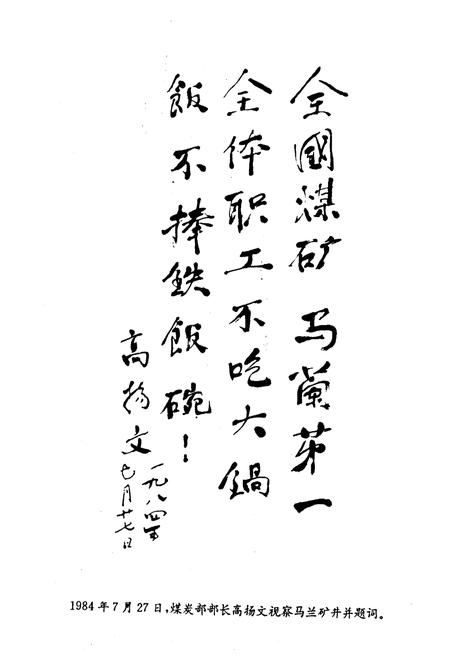 全國煤矿马蘭第一
全体职工不吃大鍋
飯不捧鉄飯碗！
高扬文
一九八四年
七月廿七日
1984年7月27日，煤炭部部长高扬文视察马兰矿井并题词。